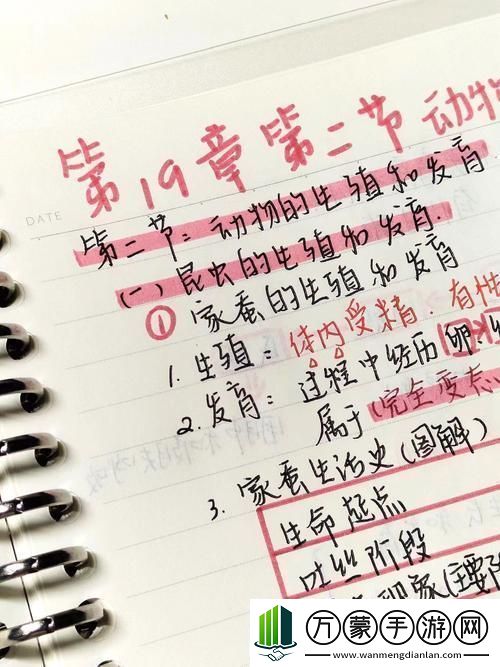 第19章第二节动物
DATE
第二节:动物的生殖和发育.
(一)昆虫的生殖和发育.
① 家蚕的生殖和发育
1. 生殖:体内受精.有性
2. 发育:过程中经历卵.
属于(完全变态
3. 家蚕生活史(图解)
生命起点
吐丝阶段
万蒙手游网
www.wanmengdianlan.com